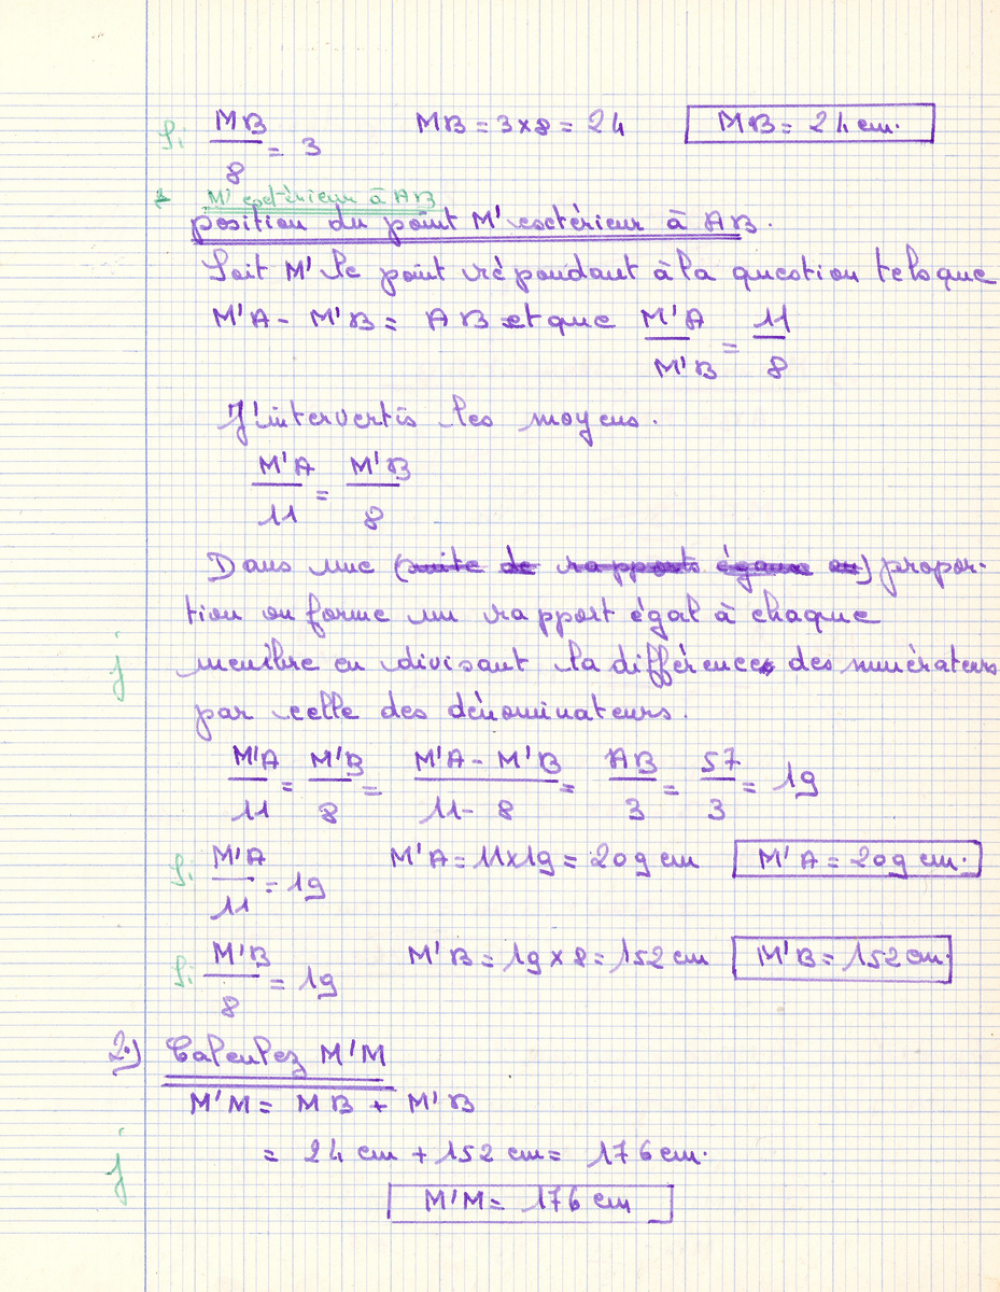 Si MB/8 = 3 MB = 3 x 8 = 24 MB = 24 cm.
M' extérieur à AB
position du point M' extérieur à AB.
Soit M' le point répondant à la question tels que
M'A - M'B = AB et que M'A/M'B = 11/8
J'intervertis les moyens.
M'A/11 = M'B/8
Dans une (suite de rapports égaux on) propor-
tion on forme un rapport égal à chaque
j membre en divisant la différence des numérateurs
par celle des dénominateurs.
M'A/11 = M'B/8 = M'A - M'B/11 - 8 = AB/3 = 57/3 = 19
Si M'A/11 = 19 M'A = 11x19 = 209 cm M'A = 209 cm.
Si M'B/8 = 19 M'B = 19 x 8 = 152 cm M'B = 152 cm.
2°) Calculez M'M
M'M = MB + M'B
j = 24 cm + 152 cm = 176 cm.
M'M = 176 cm